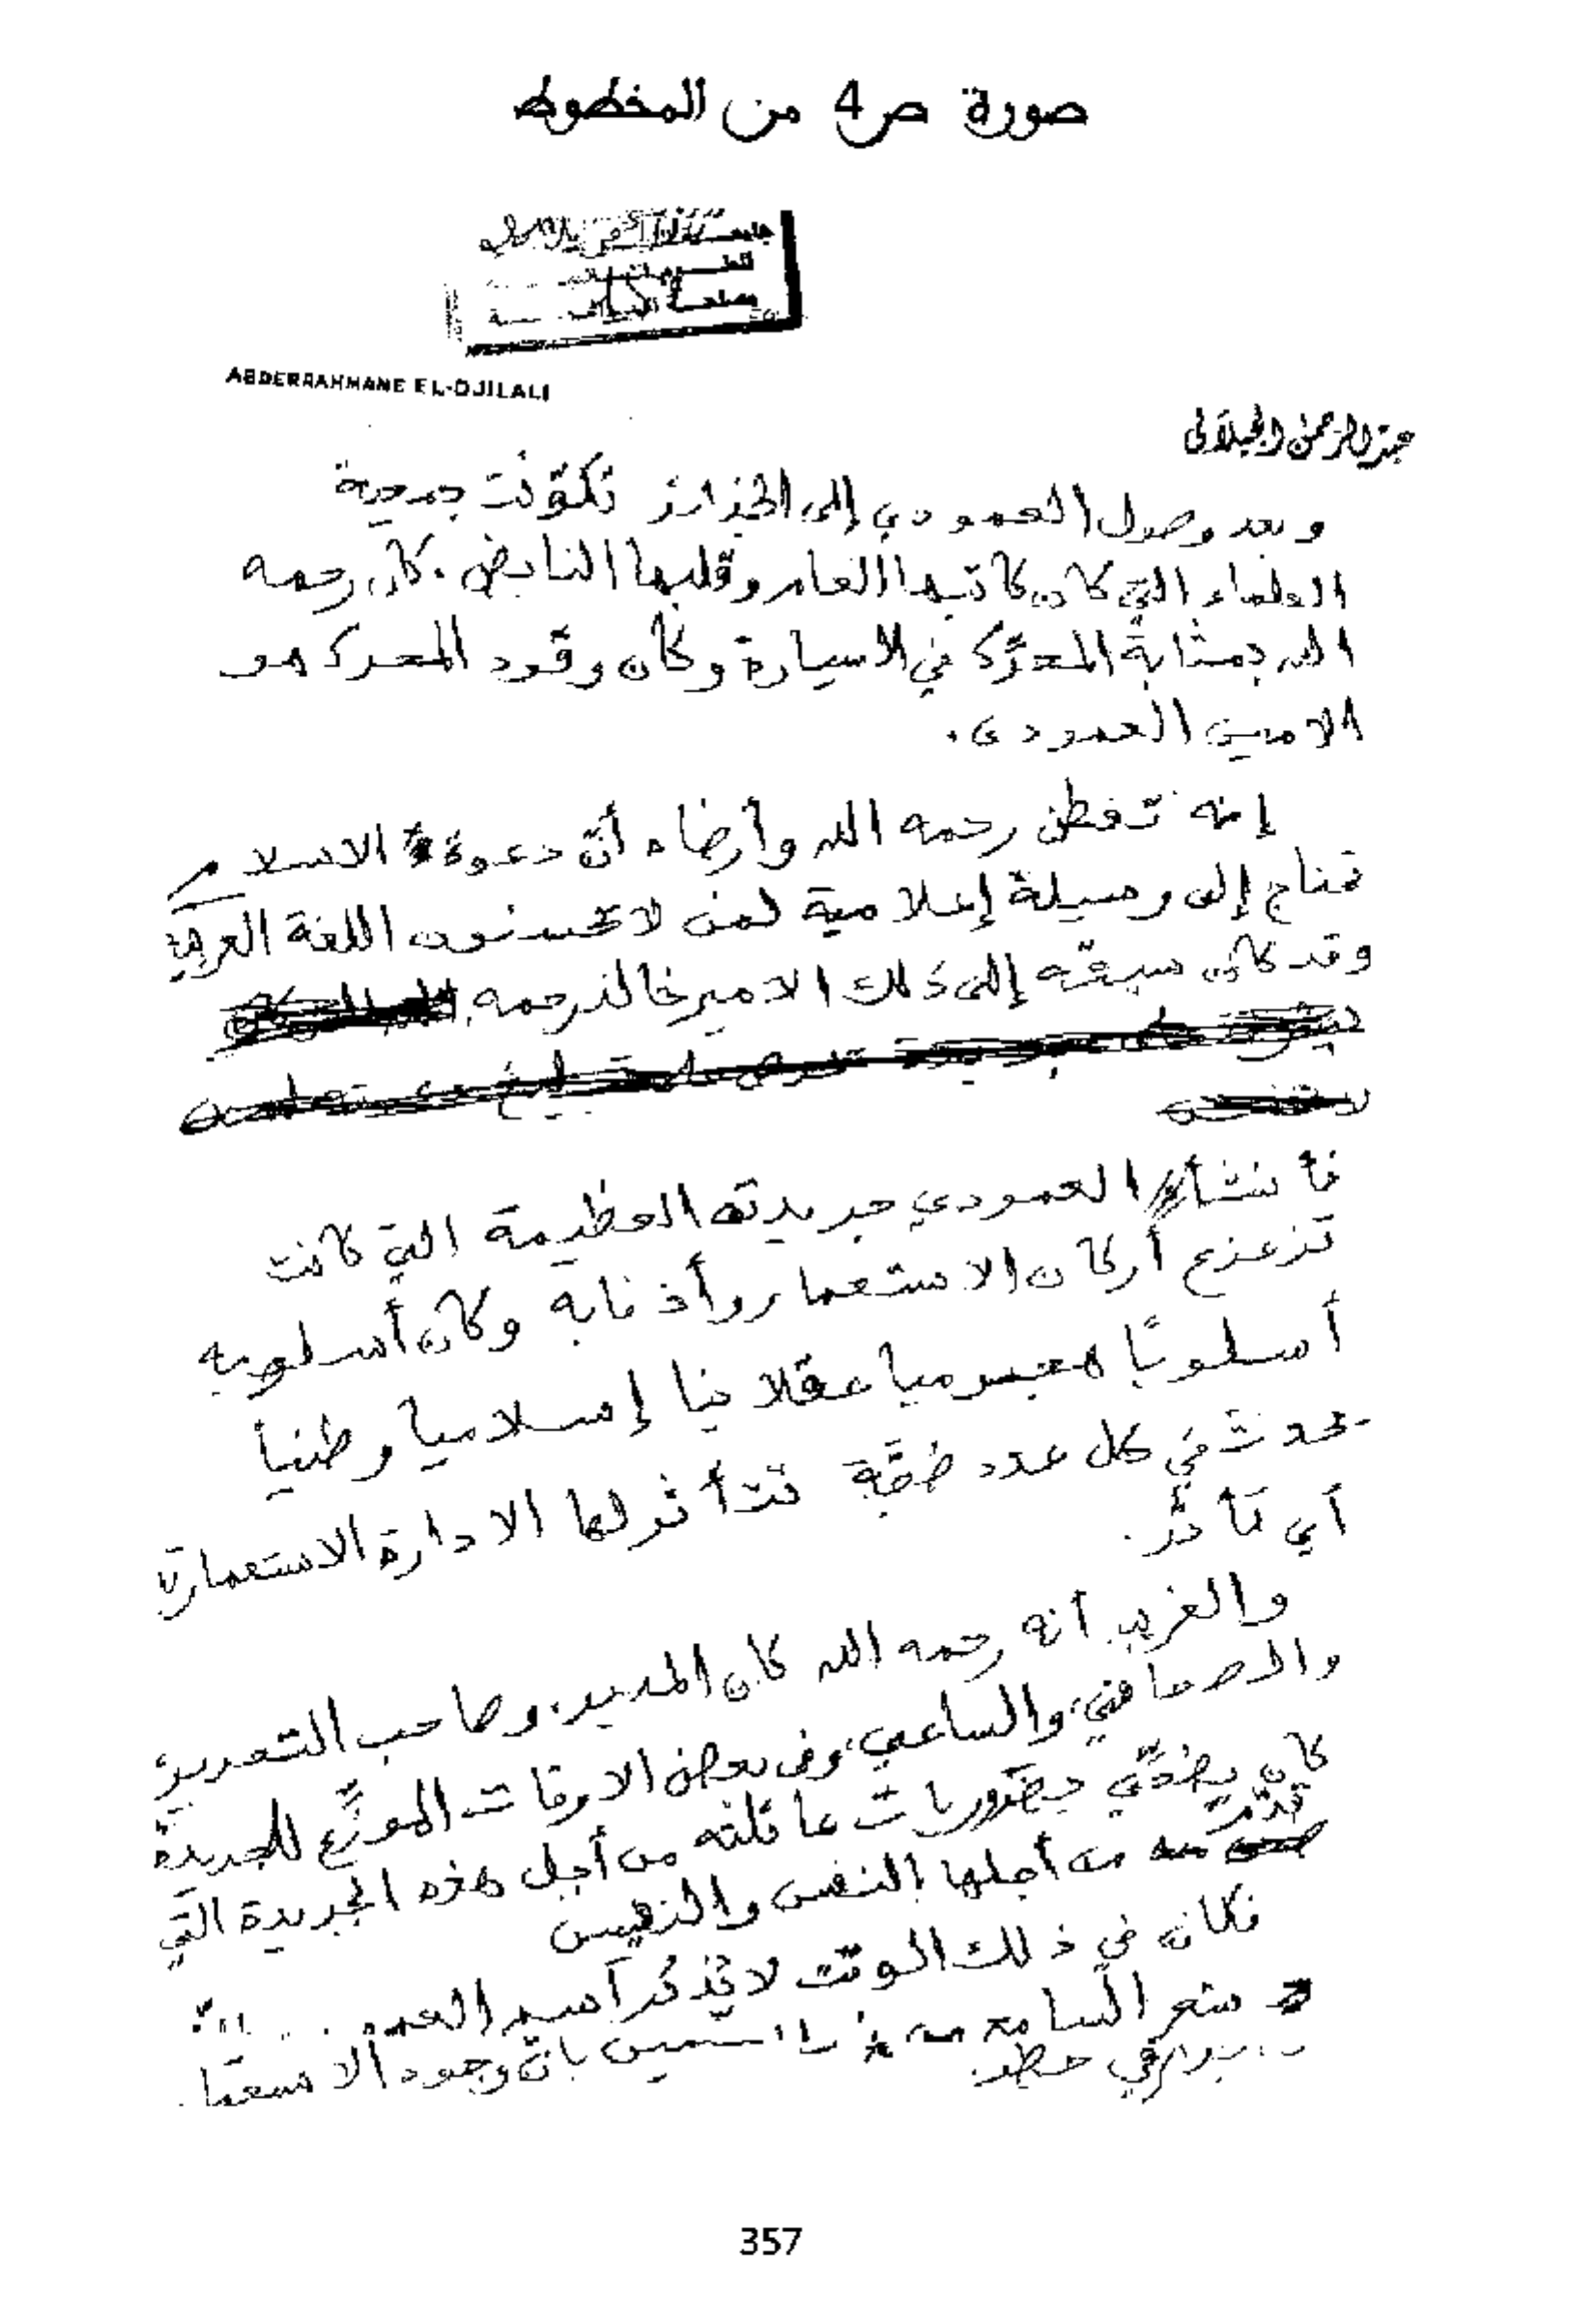 صورة ص 4 من المخطوط
ABDERRAHMANE EL-DJILALI
عبد الرحمن الجيلالي
وبعد وصول العمودي إلى الجزائر تكوّنت جمعية
العلماء التي كان كاتبها العام وقلبها النابض. كان رحمه
الله بمثابة المحرّك في السيارة وكان وقود المحرك هو
الامين العمودي.
إنه تفطن رحمه الله وأرضاه أنّ دعوة الاسلام
تحتاج إلى وسيلة إعلامية لمن لا تحسنون اللغة العربية
وقد كان سبقه إلى ذلك الامير خالد رحمه
فأنشأ العمودي جريدته العظيمة التي كانت
تزعزع أركان الاستعمار وأذنابه وكان أسلوبه
أسلوبًا عقلانيا إسلاميا وطنياً
تحدث في كل عدد ضجّة تتأثر لها الادارة الاستعمارية
أي تأثّر.
والغريب أنه رحمه الله كان المدير، وصاحب التحرير،
والصحافي، والساعي، وفى بعض الاوقات الموزّع للجريدة
كان يضحّي بضروريات عائلته من أجل هذه الجريدة التي
قدّم من أجلها النفس والنفيس
فكانه في ذلك الوقت لا يُذكر اسم
شعر السامع بانّ وجود
في خطر
357